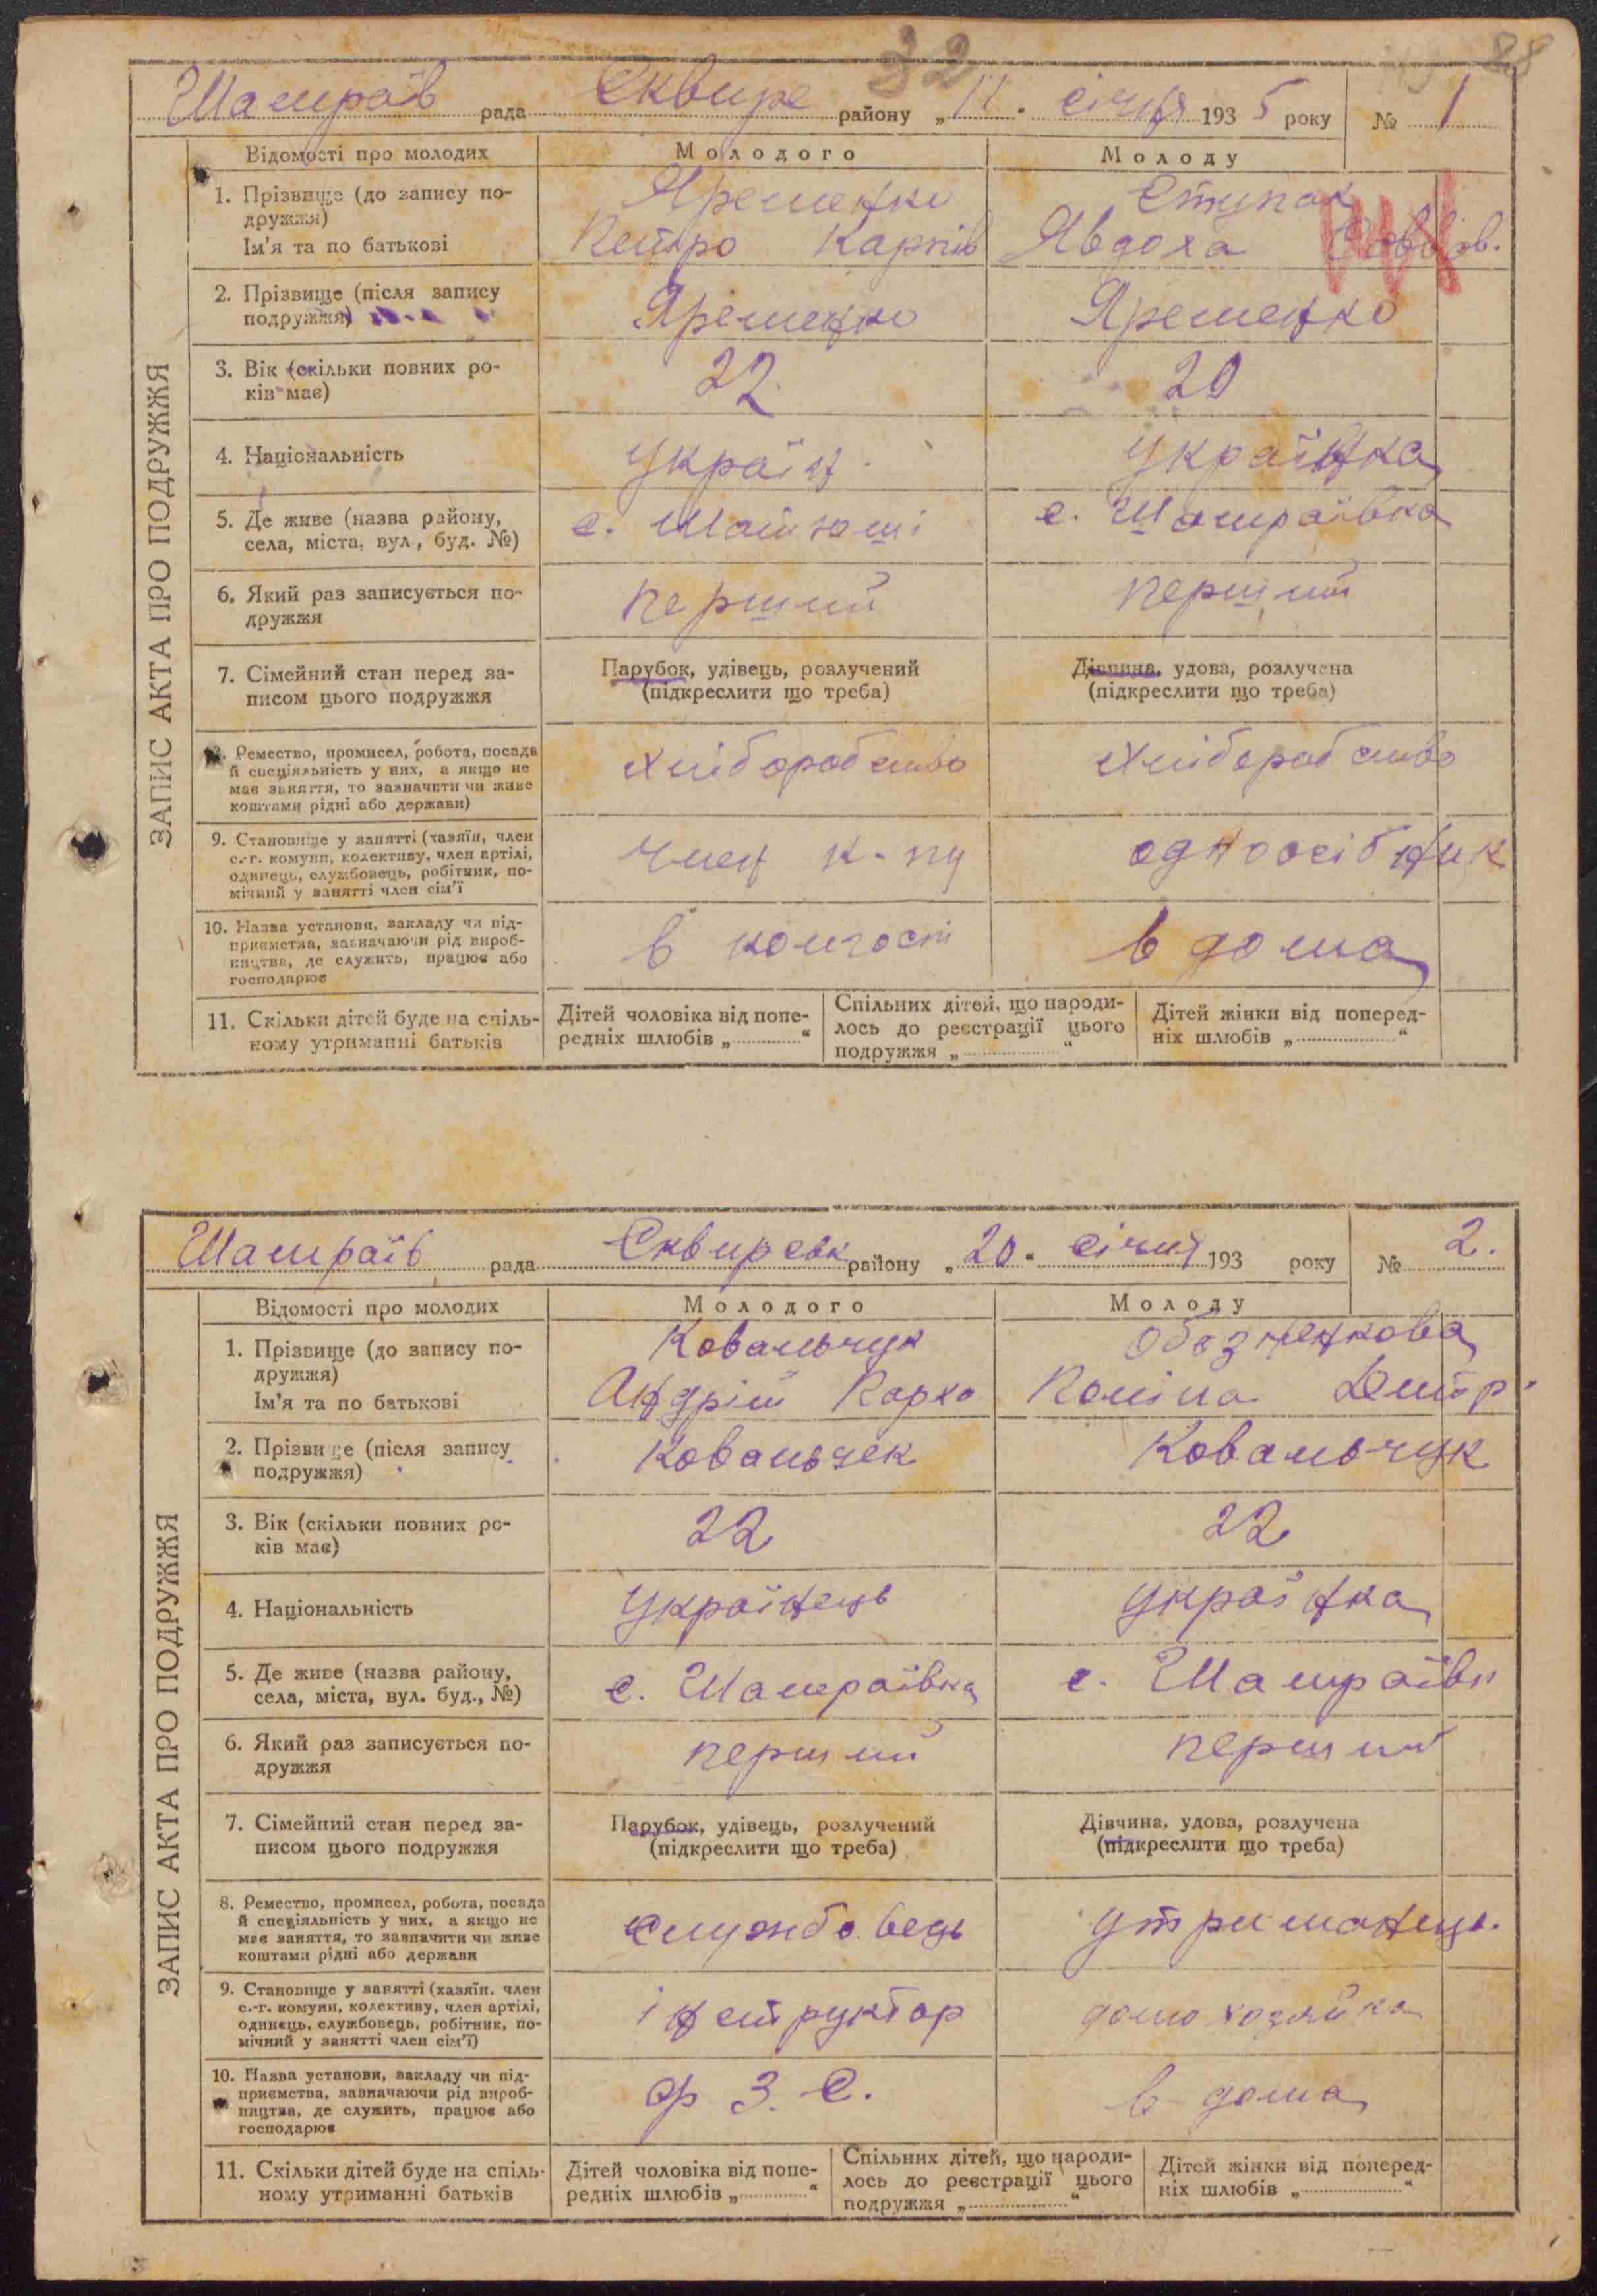 32
88
Шамраїв рада Сквире району „11“ січня 1935 року № 1
ЗАПИС АКТА ПРО ПОДРУЖЖЯ
Відомості про молодих Молодого Молоду
1. Прізвище (до запису подружжя) Яременко Ступак
Ім'я та по батькові Петро Карпів Явдоха
2. Прізвище (після запису подружжя) Яременко Яременко
3. Вік (скільки повних років має) 22 20
4. Національність Україн. Українка
5. Де живе (назва району, села, міста, вул, буд. №) с. с. Шамраївка
6. Який раз записується подружжя перший перший
7. Сімейний стан перед записом цього подружжя Парубок, удівець, розлучений (підкреслити що треба) Дівчина, удова, розлучена (підкреслити що треба)
8. Ремество, промисел, робота, посада й спеціяльність у них, а якщо не має заняття, то зазначити чи живе коштами рідні або держави) хліборобство хліборобство
9. Становище у занятті (хазяїн, член с.-г. комуни, колективу, член артілі, одинець, службовець, робітник, помічний у занятті член сім'ї член к-пу одноосібник
10. Назва установи, закладу чи підприємства, зазначаючи рід виробництва, де служить, працює або господарює в колгосп в дома
11. Скільки дітей буде на спільному утриманні батьків Дітей чоловіка від попередніх шлюбів „ “ Спільних дітей, що народилось до реєстрації цього подружжя „ “ Дітей жінки від попередніх шлюбів „ “
Шамраїв рада Сквирськ району „20“ січня 193 року № 2.
ЗАПИС АКТА ПРО ПОДРУЖЖЯ
Відомості про молодих Молодого Молоду
1. Прізвище (до запису подружжя) Ковальчук
Ім'я та по батькові Андрій Кархо Поліна Дмитр.
2. Прізвище (після запису подружжя) Ковальчек Ковальчук
3. Вік (скільки повних років має) 22 22
4. Національність Українець Українка
5. Де живе (назва району, села, міста, вул. буд., №) с. Шамраївка с. Шамраївк
6. Який раз записується подружжя перший перший
7. Сімейний стан перед записом цього подружжя Парубок, удівець, розлучений (підкреслити що треба) Дівчина, удова, розлучена (підкреслити що треба)
8. Ремество, промисел, робота, посада й спеціяльність у них, а якщо не має заняття, то зазначити чи живе коштами рідні або держави службовець утриманець.
9. Становище у занятті (хазяїн. член с.-г. комуни, колективу, член артілі, одинець, службовець, робітник, помічний у занятті член сім'ї) інструктор домохозяйка
10. Назва установи, закладу чи підприємства, зазначаючи рід виробництва, де служить, працює або господарює Ф З. С. в дома
11. Скільки дітей буде на спільному утриманні батьків Дітей чоловіка від попередніх шлюбів „ “ Спільних дітей, що народилось до реєстрації цього подружжя „ “ Дітей жінки від попередніх шлюбів „ “